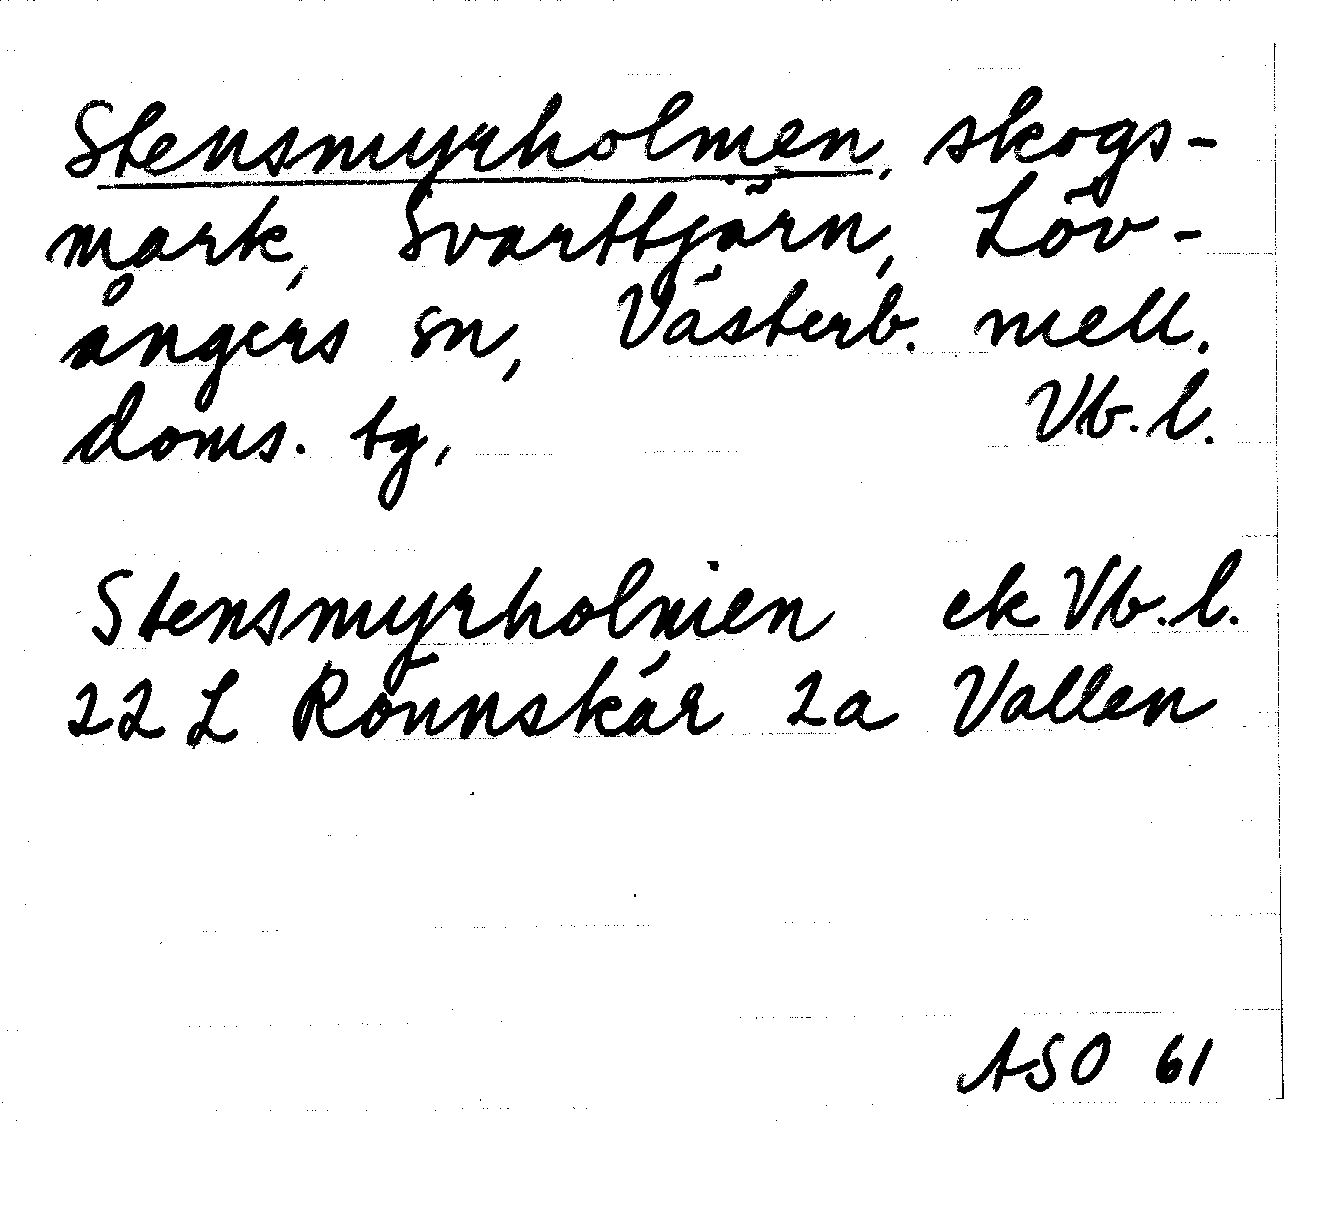 Stensmyrholmen, skogs-
mark, Svarttjärn, Löv-
ångers sn, Västerb. mell.
doms. tg, Vb. l.
Stensmyrholmen ek Vb. l.
22 L Rönnskär 2a Vallen
ASO 61